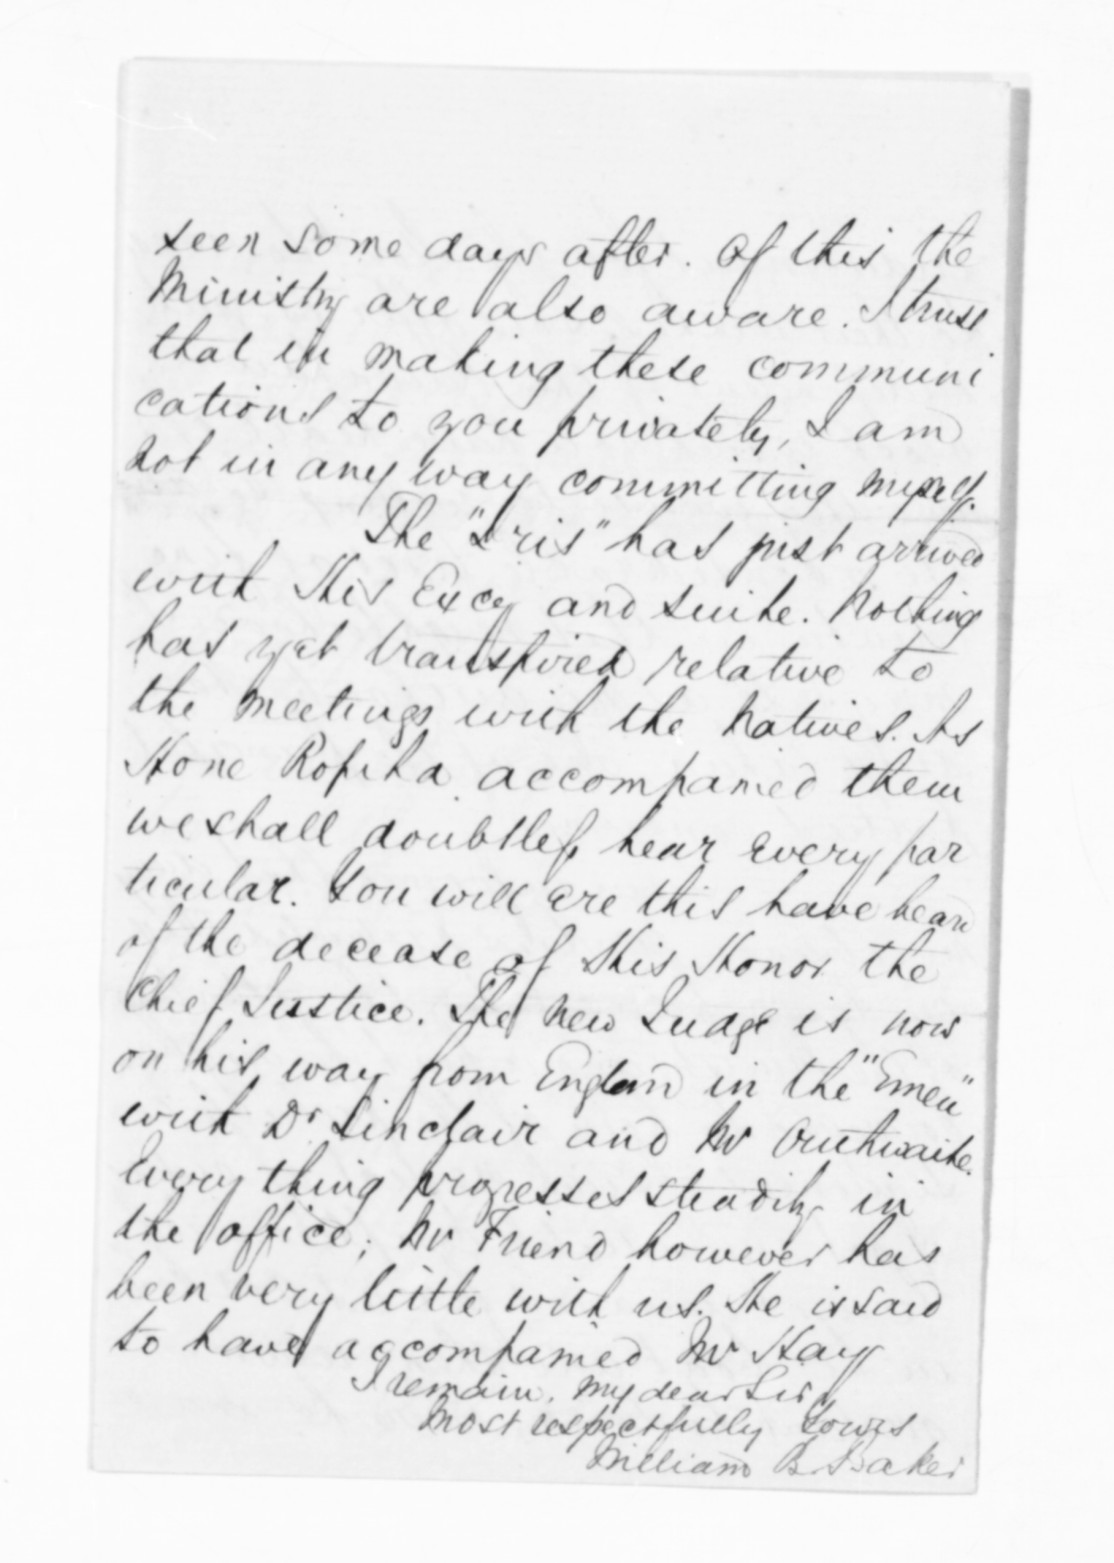 seen some days after. Of this the
Ministry are also aware. I trust
that in making these communi
cations to you privately, I am
not in any way committing myself.
The "Iris" has just arrived
with His Excy and suite. Nothing
has yet transpired relative to
the meetings with the Natives. As
Hone Ropiha accompanied them
we shall doubtless hear every par
ticular. You will ere this have heard
of the decease of His Honor the
Chief Justice. The New Judge is now
on his way from England in the "Emeu"
with Dr Sinclair and Mr Outhwaite.
Everything progresses steadily in
the office; Mr Friend however has
been very little with us. He is said
to have accompanied Mr Hay
I remain, My dear Sir
Most respectfully Yours
William B. Baker